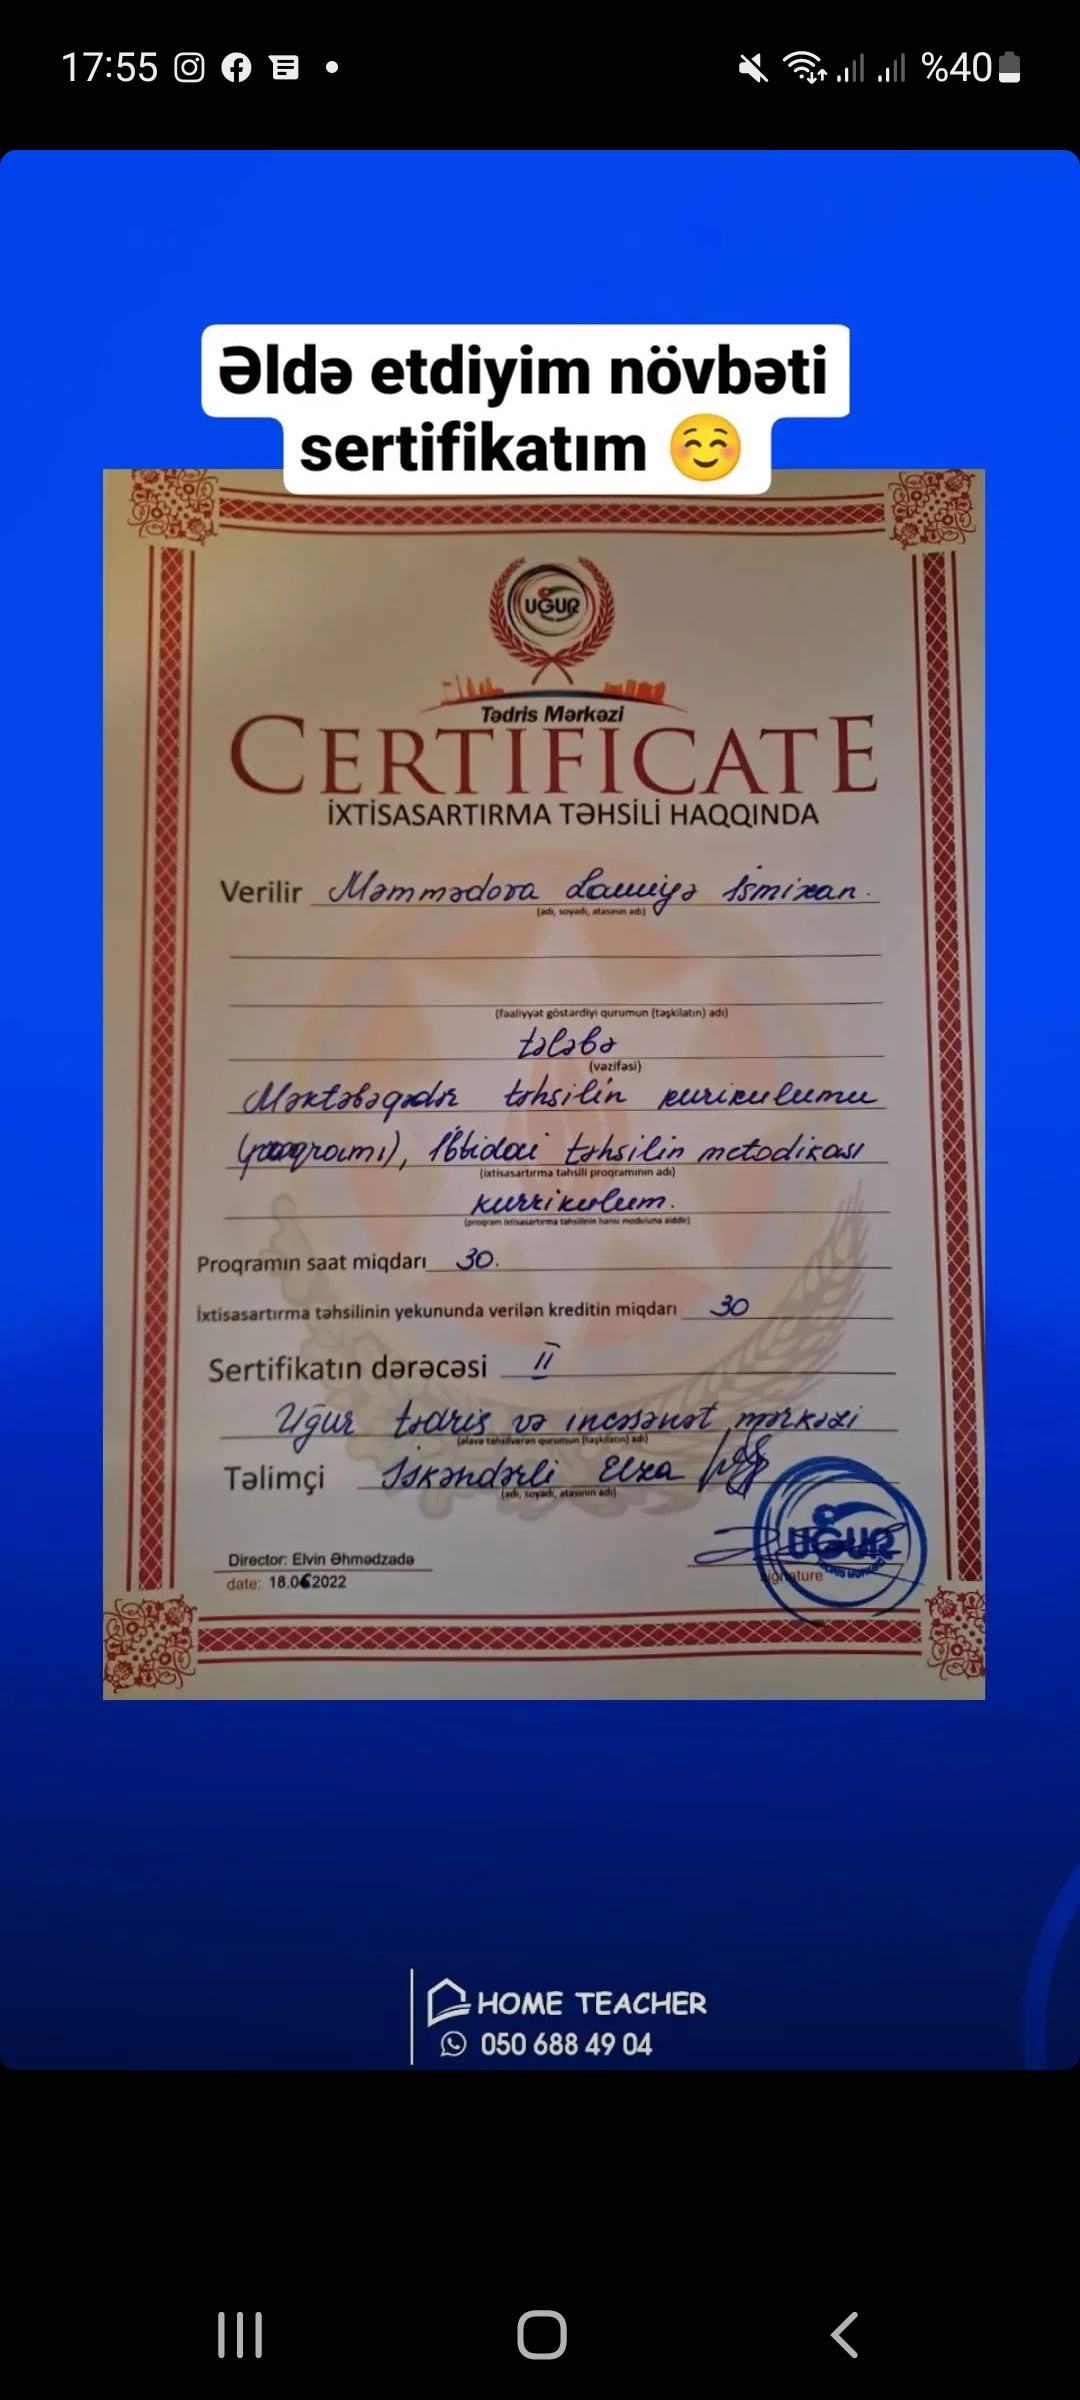 17:55
%40
Əldə etdiyim növbəti
sertifikatım ☺️
UĞUR
Tədris Mərkəzi
CERTIFICATE
İXTİSASARTIRMA TƏHSİLİ HAQQINDA
Verilir Məmmədova Lamiyə İsmixan.
(adı, soyadı, atasının adı)
(fəaliyyət göstərdiyi qurumun (təşkilatın) adı)
tələbə
(vəzifəsi)
Məktəbəqədər təhsilin kurikulumu
(proqramı), İbtidai təhsilin metodikası
(ixtisasartırma təhsili proqramının adı)
kurrikulum.
(proqram ixtisasartırma təhsilinin hansı moduluna aiddir)
Proqramın saat miqdarı 30.
İxtisasartırma təhsilinin yekununda verilən kreditin miqdarı 30
Sertifikatın dərəcəsi II
Uğur tədris və incəsənət mərkəzi
(əlavə təhsilverən qurumun (təşkilatın) adı)
Təlimçi İskəndərli Elza
(adı, soyadı, atasının adı)
Director: Elvin Əhmədzadə
date: 18.06 2022
UĞUR
signature
HOME TEACHER
050 688 49 04